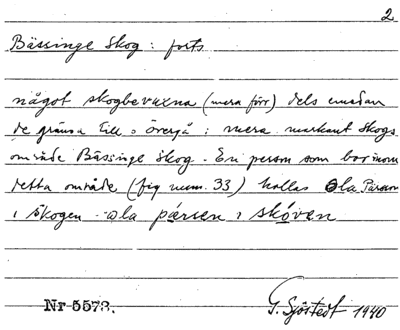 2
Bässinge Skog: forts.
något skogbevuxna (mera förr) dels emedan
de gränsa till o övergå i mera markant skogs
område Bässinge skog. En person som bor inom
detta område (fig num. 33) kallas Ola Parsen
i Skogen - ola pársen i skóven
Nr 5573.
G. Sjöstedt 1940